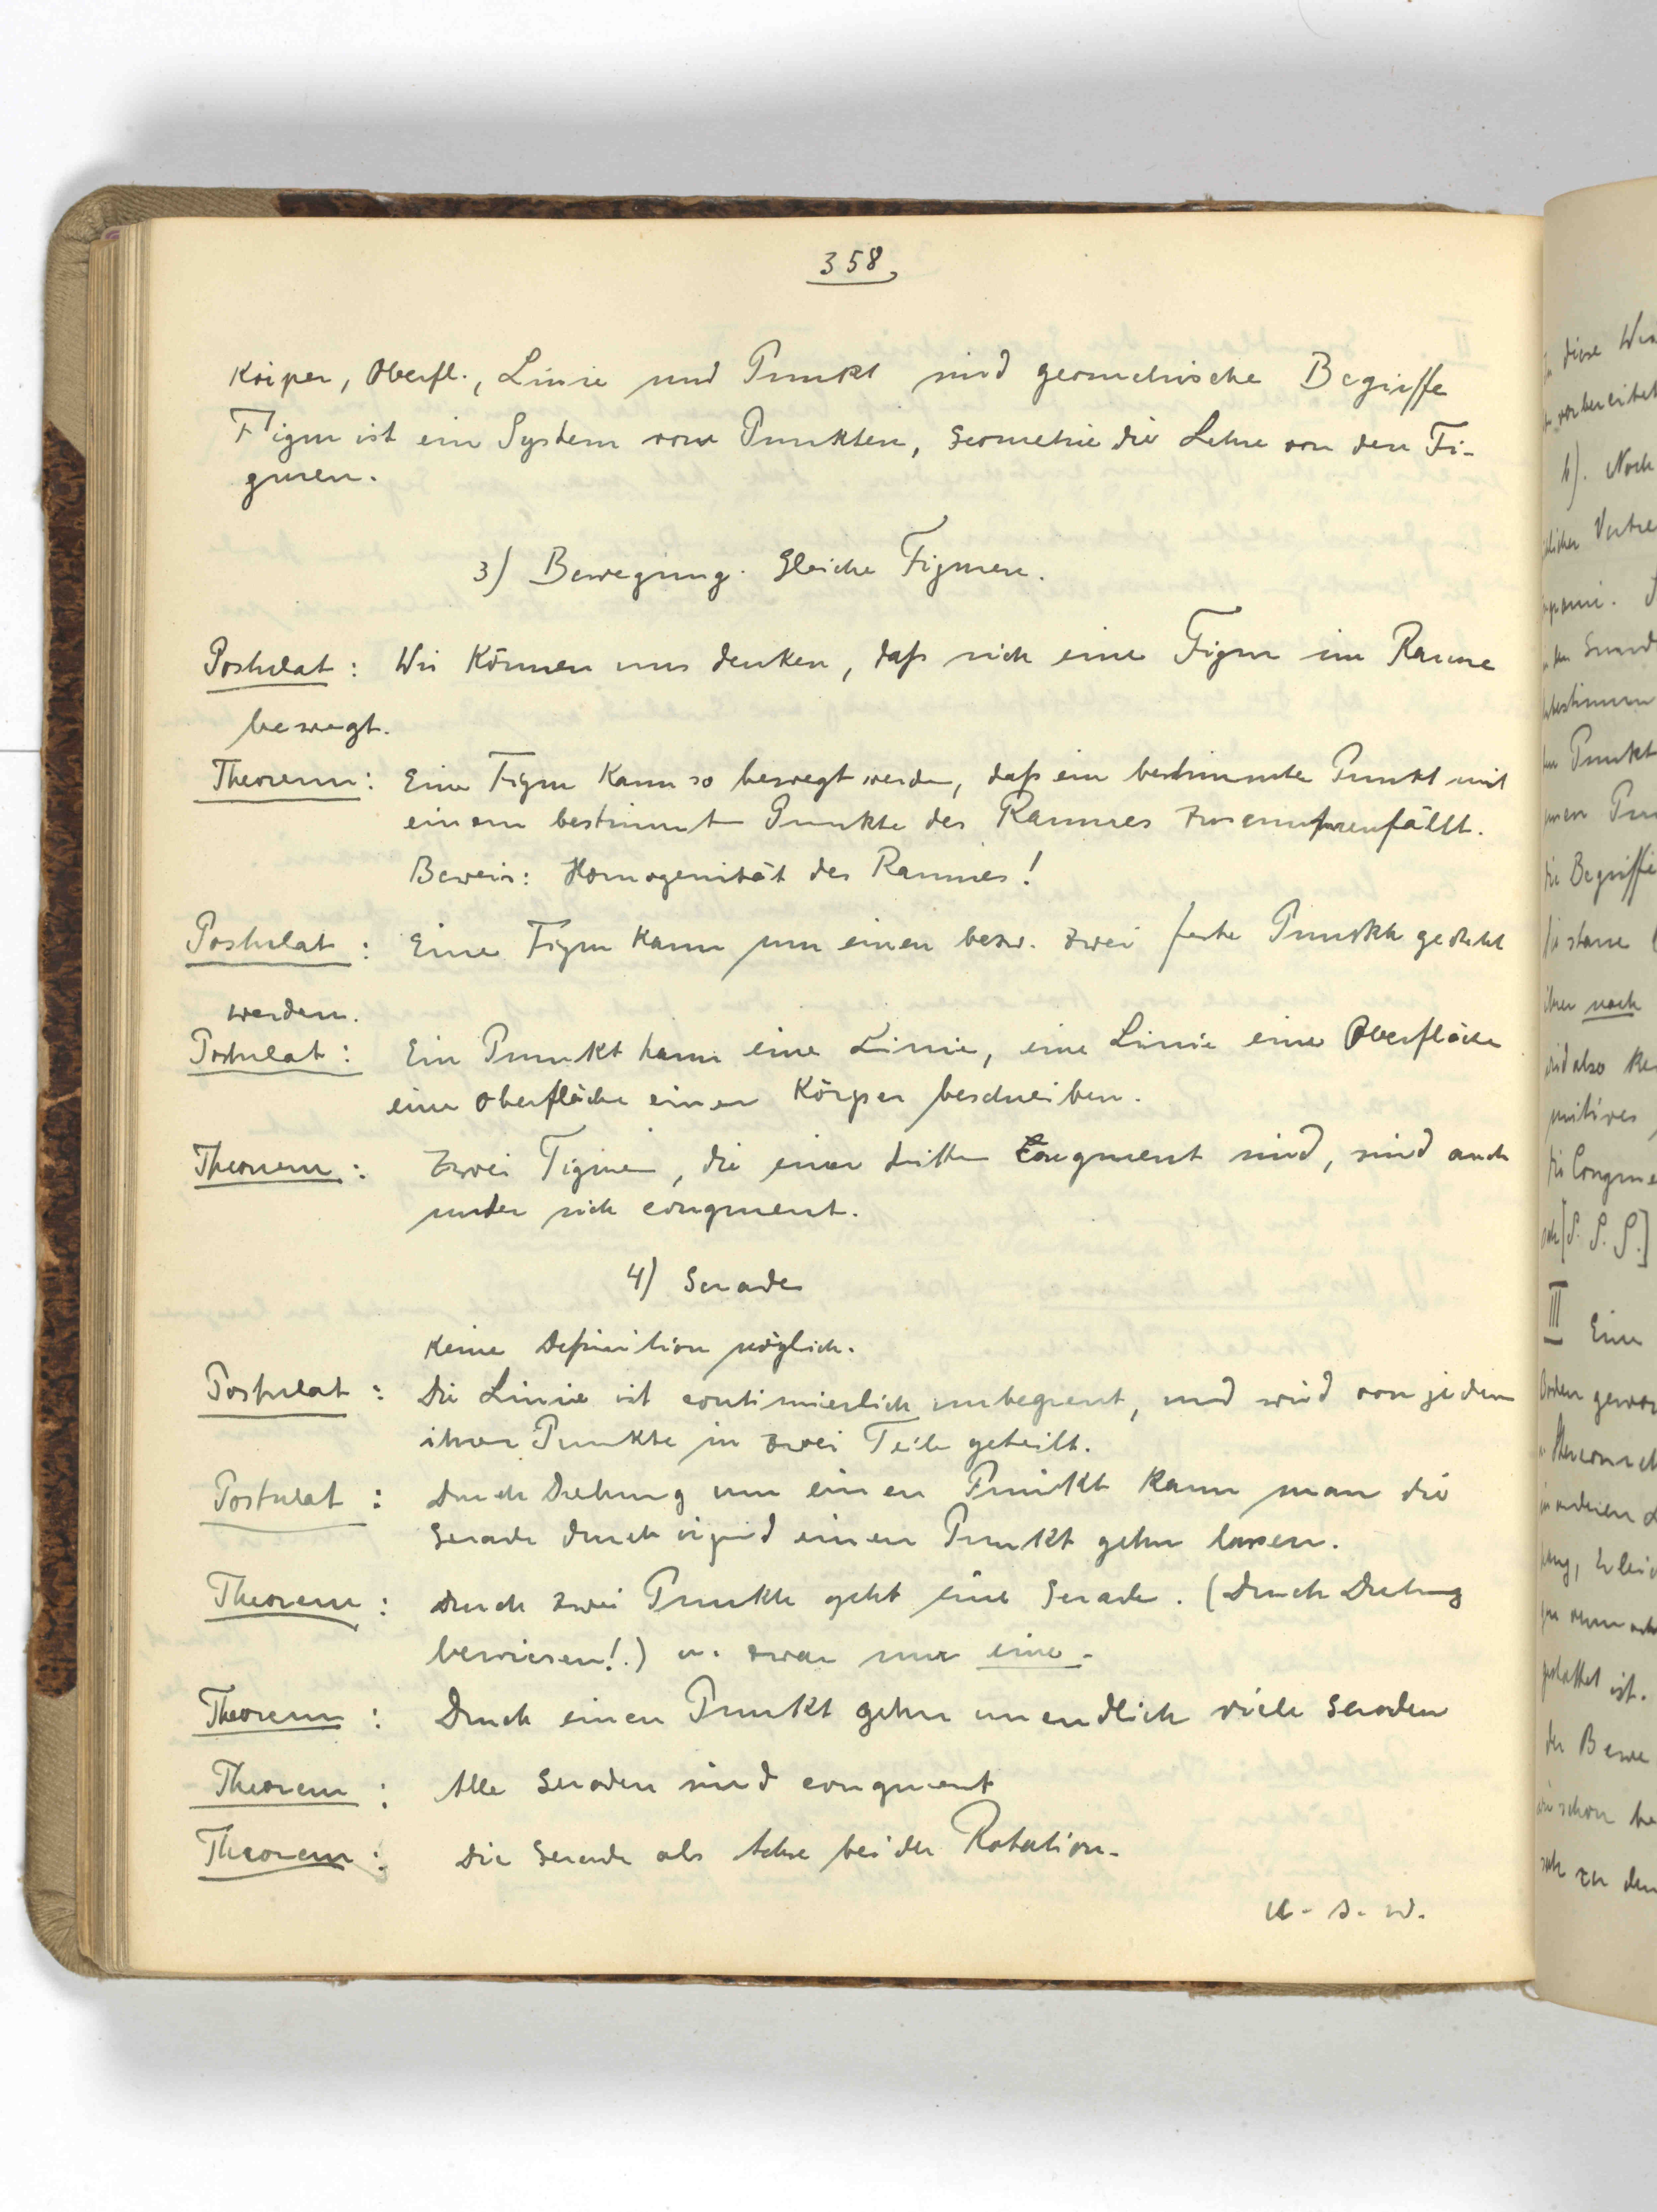 358,
Körper, Oberfl., Linie und Punkt sind geometrische Begriffe
Figur ist ein System von Punkten, Geometrie die Lehre von den Fi-
guren.
3) Bewegung. Gleiche Figuren.
Postulat: Wir können uns denken, daß sich eine Figur im Raume
bewegt.
Theorem: Eine Figur kann so bewegt werden, daß ein bestimmter Punkt mit
einem bestimmt Punkte des Raumes zusammenfällt.
Beweis: Homogenität des Raumes!
Postulat: Eine Figur kann um einen bezw. zwei feste Punkte gedreht
werden.
Postulat: Ein Punkt kann eine Linie, eine Linie eine Oberfläche
eine Oberfläche einen Körper beschreiben.
Theorem: Zwei Figuren, die einer dritten congruent sind, sind auch
unter sich congruent.
4) Gerade
Keine Definition möglich.
Postulat: Die Linie ist continuierlich unbegrenzt, und wird von jedem
ihrer Punkte in zwei Teile geteilt.
Postulat: Durch Drehung um einen Punkt kann man die
Gerade durch irgend einen Punkt gehn lassen.
Theorem: Durch zwei Punkte geht eine Gerade. (Durch Drehung
bewiesen!.) u. zwar nur eine.
Theorem: Durch einen Punkt gehn unendlich viele Geraden
Theorem: Alle Geraden sind congruent
Theorem: Die Gerade als Achse bei der Rotation.
u. s. w.
diese
vorbereitet
b). Noch
bestimmen
Punkt
die Begriffe
starre
ihrer noch
also
[S. S. S.]
III Eine
gestattet ist.
der Bewe
schon be
zu den